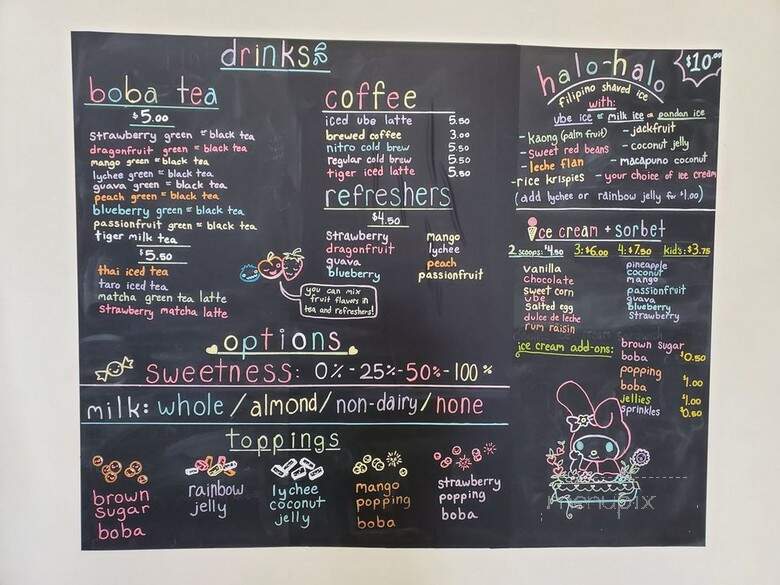 drinks
boba tea
$5.00
strawberry green = black tea
dragonfruit green = black tea
mango green = black tea
lychee green = black tea
guava green = black tea
peach green = black tea
blueberry green = black tea
passionfruit green = black tea
tiger milk tea
$5.50
thai iced tea
taro iced tea
matcha green tea latte
strawberry matcha latte
coffee
iced ube latte 5.50
brewed coffee 3.00
nitro cold brew 5.50
regular cold brew 5.50
tiger iced latte 5.50
refreshers
$4.50
strawberry mango
dragonfruit lychee
guava peach
blueberry passionfruit
you can mix
fruit flavors in
tea and refreshers!
options
sweetness: 0%-25%-50%-100%
milk: whole / almond / non-dairy / none
toppings
brown
sugar
boba
rainbow
jelly
lychee
coconut
jelly
mango
popping
boba
strawberry
popping
boba
halo-halo
$10.00
filipino shaved ice
with:
ube ice or milk ice or pandan ice
-kaong (palm fruit) -jackfruit
-sweet red beans -coconut jelly
-leche flan -macapuno coconut
-rice krispies -your choice of ice cream
(add lychee or rainbow jelly for $1.00)
ice cream + sorbet
2 scoops: $4.50 3: $6.00 4: $7.50 kids: $3.75
vanilla pineapple
chocolate coconut
sweet corn mango
ube passionfruit
salted egg guava
dulce de leche blueberry
rum raisin strawberry
ice cream add-ons: brown sugar
boba $0.50
popping
boba $1.00
jellies $1.00
sprinkles $0.50
menupix